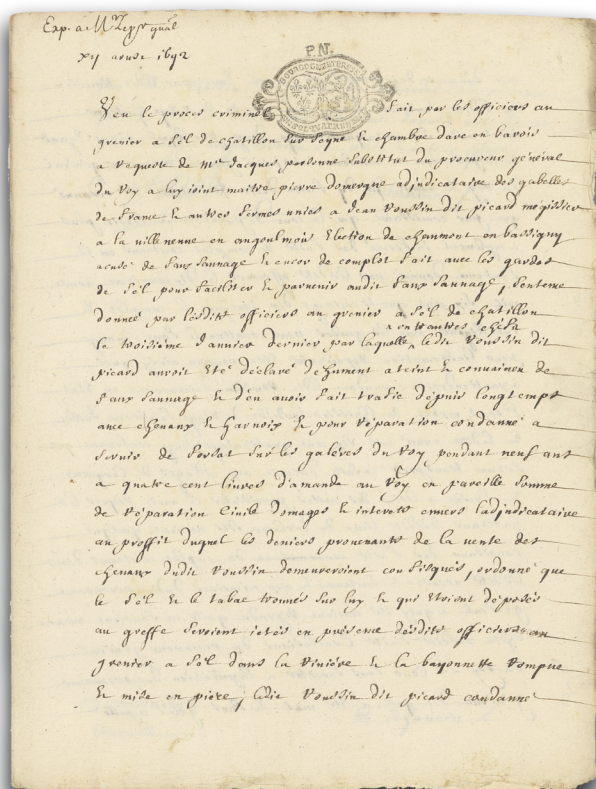 Exp. a Mr
xij 1692
P.N.
BOURGOGNE
Veu le proces crimine fait par les officiers au
grenier a sel de chatillon sur seyne et chambre dare en barois
a requeste de Mre Jacques personne substitut du procureur général
du Roy a luy joint maitre pierre domergue adjudicataire des gabelles
de france et autres fermes unies a Jean Voussin dit picard mégissier
a la villeneuve en angoulmois Election de chaumont en bassigny
acusé de faux saunage et encor de complot fait avec les gardes
de sel pour faciliter et parvenir audit faux saunage, sentence
donnée par lesdits officiers au grenier a sel de chatillon
le troisième Janvier dernier par laquelle, entrautres chefs ledit Voussin dit
picard auroit été déclaré dehument ateint et convaincu de
faux saunage et d'en avoir fait trafic depuis longtemps
avec chevaux et harnoix et pour réparation condanné a
servir de forsat sur les galères du Roy pendant neuf ans
a quatre cent livres d'amande au Roy en pareille somme
de réparation civile domages et interets envers ladjudicataire
au proffit duquel les deniers provenants de la vente des
chevaux dudit Voussin demeureroient confisqués, ordonné que
le sel et le tabac trouvés sur luy et qui étoient déposés
au greffe seroient jetés en présence desdits officiers au
grenier a sel dans la rivière et la bayonnette rompue
et mise en pièce, ledit Voussin dit picard condanné